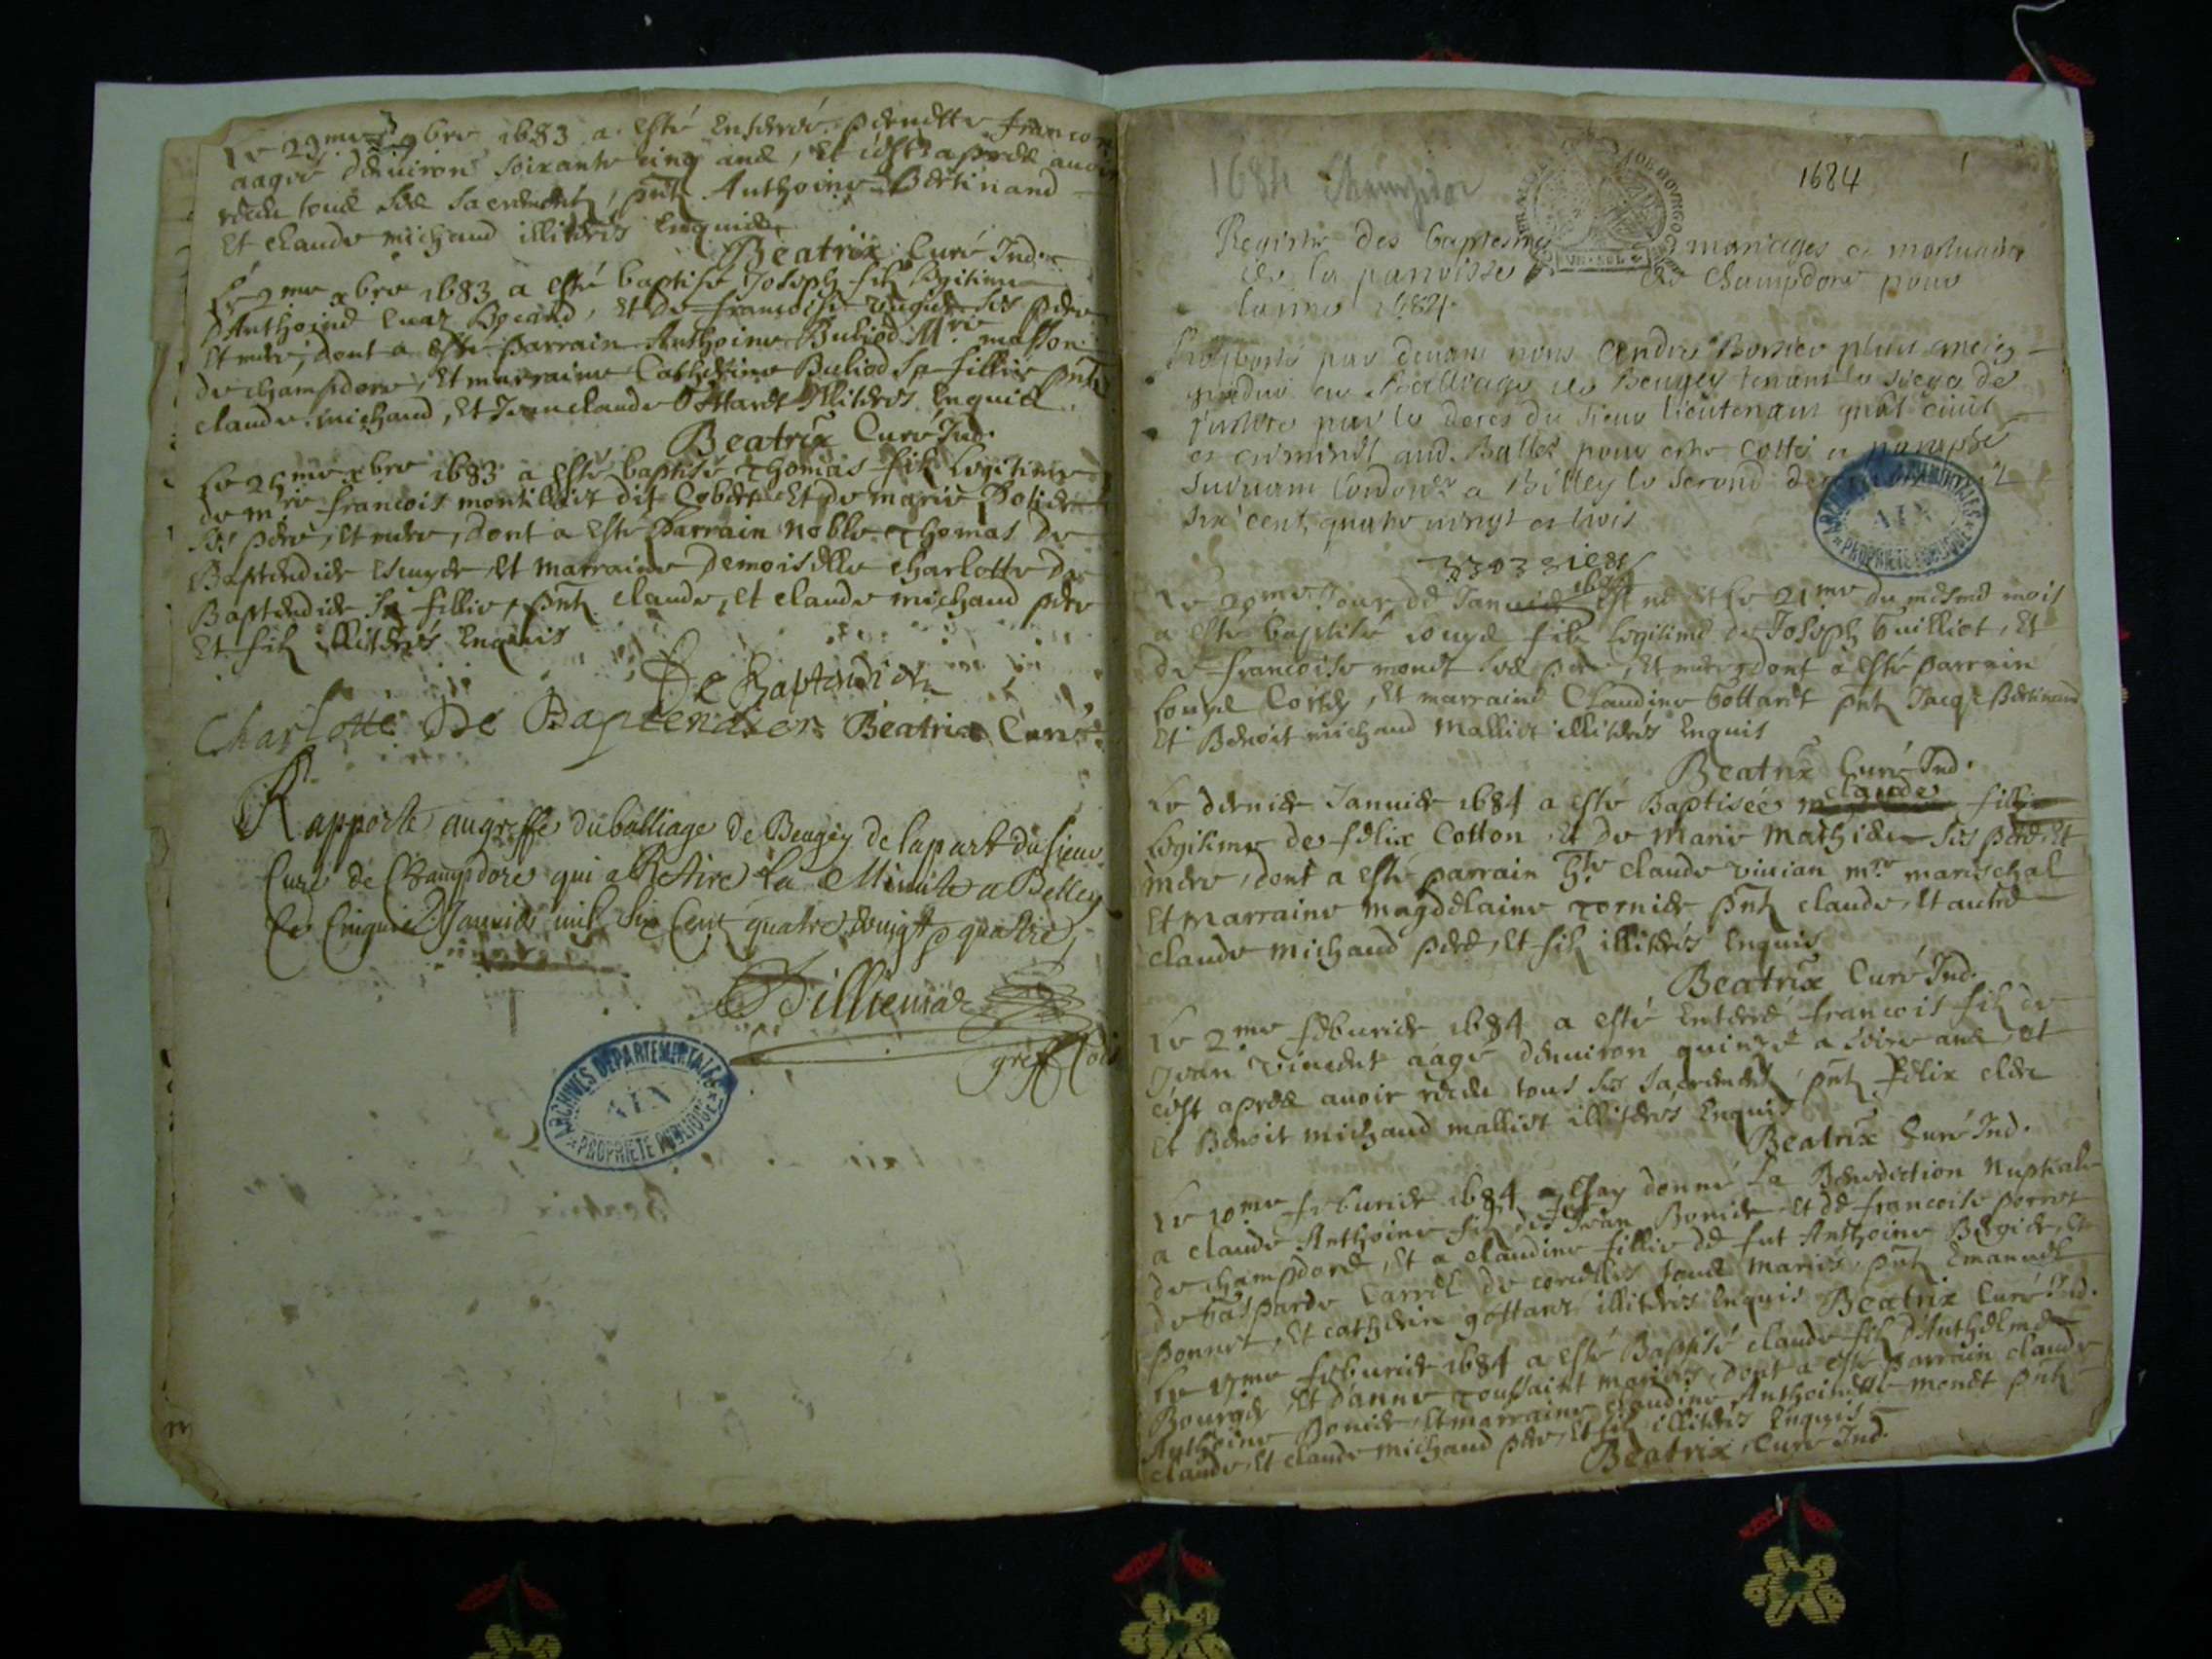 Le 29me 9bre 1683 a esté Enterrée pernette francon
aagée d'environ soixante cinq ans, Et cest apres avoir
receu tous ses sacrements, pnts Anthoine Bertinand
Et claude michaud illiterés Enquis
Beatrix Curé Ind.
Le 2me xbre 1683 a esté baptisé Joseph fils legitime
d'Anthoine Bocard, Et de francoise ses pere
Et mere, dont a esté parrain Anthoine Buliod Mre masson
de champdore, Et marraine Catherine Buliod sa fillie pnts
claude michaud, Et Jean claude Gottaret Illiterés Enquis
Beatrix Curé Ind.
Le xbre 1683 a esté baptisé Thomas fils Legitime
de mre francois montillier dit Cobert Et de marie
ses pere, Et mere, dont a este Parrain Noble Thomas De
Baptendier escuyer Et Marraine Demoiselle charlotte De
Baptendier sa fillie, pnts claude, Et claude michaud pere
Et fils illiterés Enquis
De Baptendier
Charlotte De Baptendier Beatrix Curé
Rapporte au greffe du balliage de Beugey de la part du sieur
Curé de Champdore qui a Retiré la Minute a Belley
le Cinquie. Janvier mil Six Cent quatre vingtz quatre
Billiemaz
greff
ARCHIVES DEPARTEMENTALES
AIN
PROPRIETE PUBLIQUE
1684 Champdor
1684
1
Registre des baptesmes mariages et mortuaires
de la parroisse de Champdore pour
lannee 1684
par devant nous Andre plus ancien
gradue au Balliage de Beugey tenant le siege de
justice par le deces du sieur lieutenant gnal civil
et criminel aud. Balliage pour estre cotté et paraphé
suivant lordonce a Belley le second
six cent quatre vingt et trois
ARCHIVES DEPARTEMENTALES
AIN
PROPRIETE PUBLIQUE
Le 20me Jour de Janvier 1684 est né Et le 21me du mesme mois
a esté baptisé Louys fils legitime de Joseph Guilliot, Et
de francoise monet ses pere, Et mere, dont a esté parrain
Louys, Et marraine Claudine Gottaret pnts Jacqs Bertinand
Et Benoit michaud Malliet illiterés Enquis
Beatrix Curé Ind.
Le dernier Janvier 1684 a esté Baptisée claude fillie
Legitime de felix Cotton, Et de Marie Mathieu ses pere, Et
mere, dont a esté parrain hble claude vivian mre mareschal
Et Marraine magdelaine Tornier pnts claude, Et autre
claude michaud pere, Et fils illiterés Enquis
Beatrix Curé Ind.
Le 2me feburier 1684 a esté Enterré francois fils de
Jean vincent aagé d'environ quinze a seize ans, et
cest apres avoir receu tous ses sacrements pnts felix
Et Benoit michaud malliet illiterés Enquis
Beatrix Curé Ind.
Le 10me feburier 1684 Jay donné La Benediction Nuptiale
a claude Anthoine fils de Jean Bonier Et de francoise perret
de champdore, Et a claudine fillie de fut Anthoine Et
de Gasparde Carrel de corcelles tous Mariés, pnts Emanuel
ponnet, Et catherin gottaret illiterés Enquis Beatrix Curé Ind.
Le 17me feburier 1684 a esté Baptisé claude fils d'Anthelme
Bourge, Et d'anne Toussaint mariés, dont a esté parrain claude
Anthoine, Et marraine claudine Anthoinette monet pnts
claude, Et claude michaud pere, Et fils illiterés Enquis
Beatrix Curé Ind.